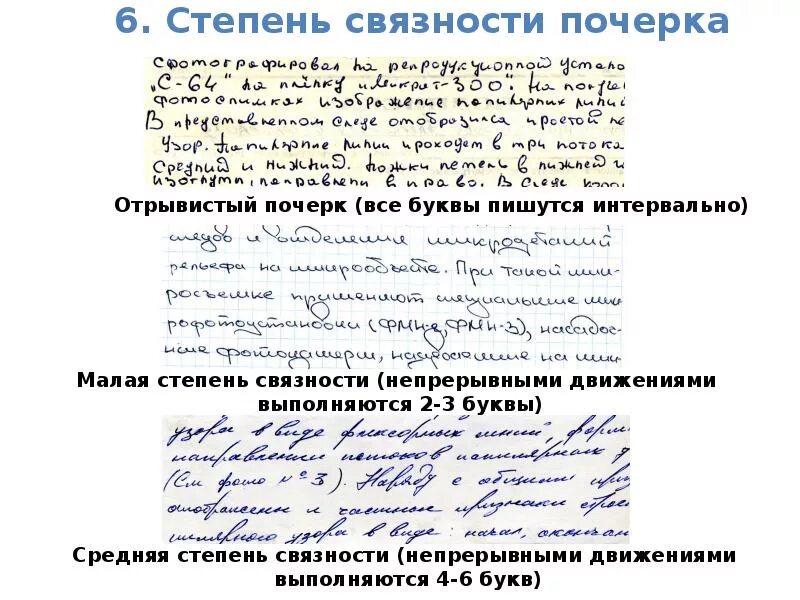 6. Степень связности почерка
сфотографировал на репродукционной устано
„С-64" на плёнку „микрат-300". На получе
фотоснимках изображение папилярних линий
В представленном следе отобразился простой пе
узор. Папилярние линии проходет в три потока
Средний и нижний. Ножки петель в нижней и
изогнути, направлени в право. В следе
Отрывистый почерк (все буквы пишутся интервально)
следов и отделения микродеталий
рельефа на микрообъекте. При такой мик-
росъемке применяют специальные мик
рофотоустановки (ФМН-2, ФМН-3), насадоч-
ные фотокамеры, надеваемые на мик
Малая степень связности (непрерывными движениями
выполняются 2-3 буквы)
узора в виде флексорных линий, форм
направлении потоков папиллярных
(См фото № 3). Наряду с общими приз
отображены и частные признаки строе
пиллярного узора в виде: начал, окончан
Средняя степень связности (непрерывными движениями
выполняются 4-6 букв)